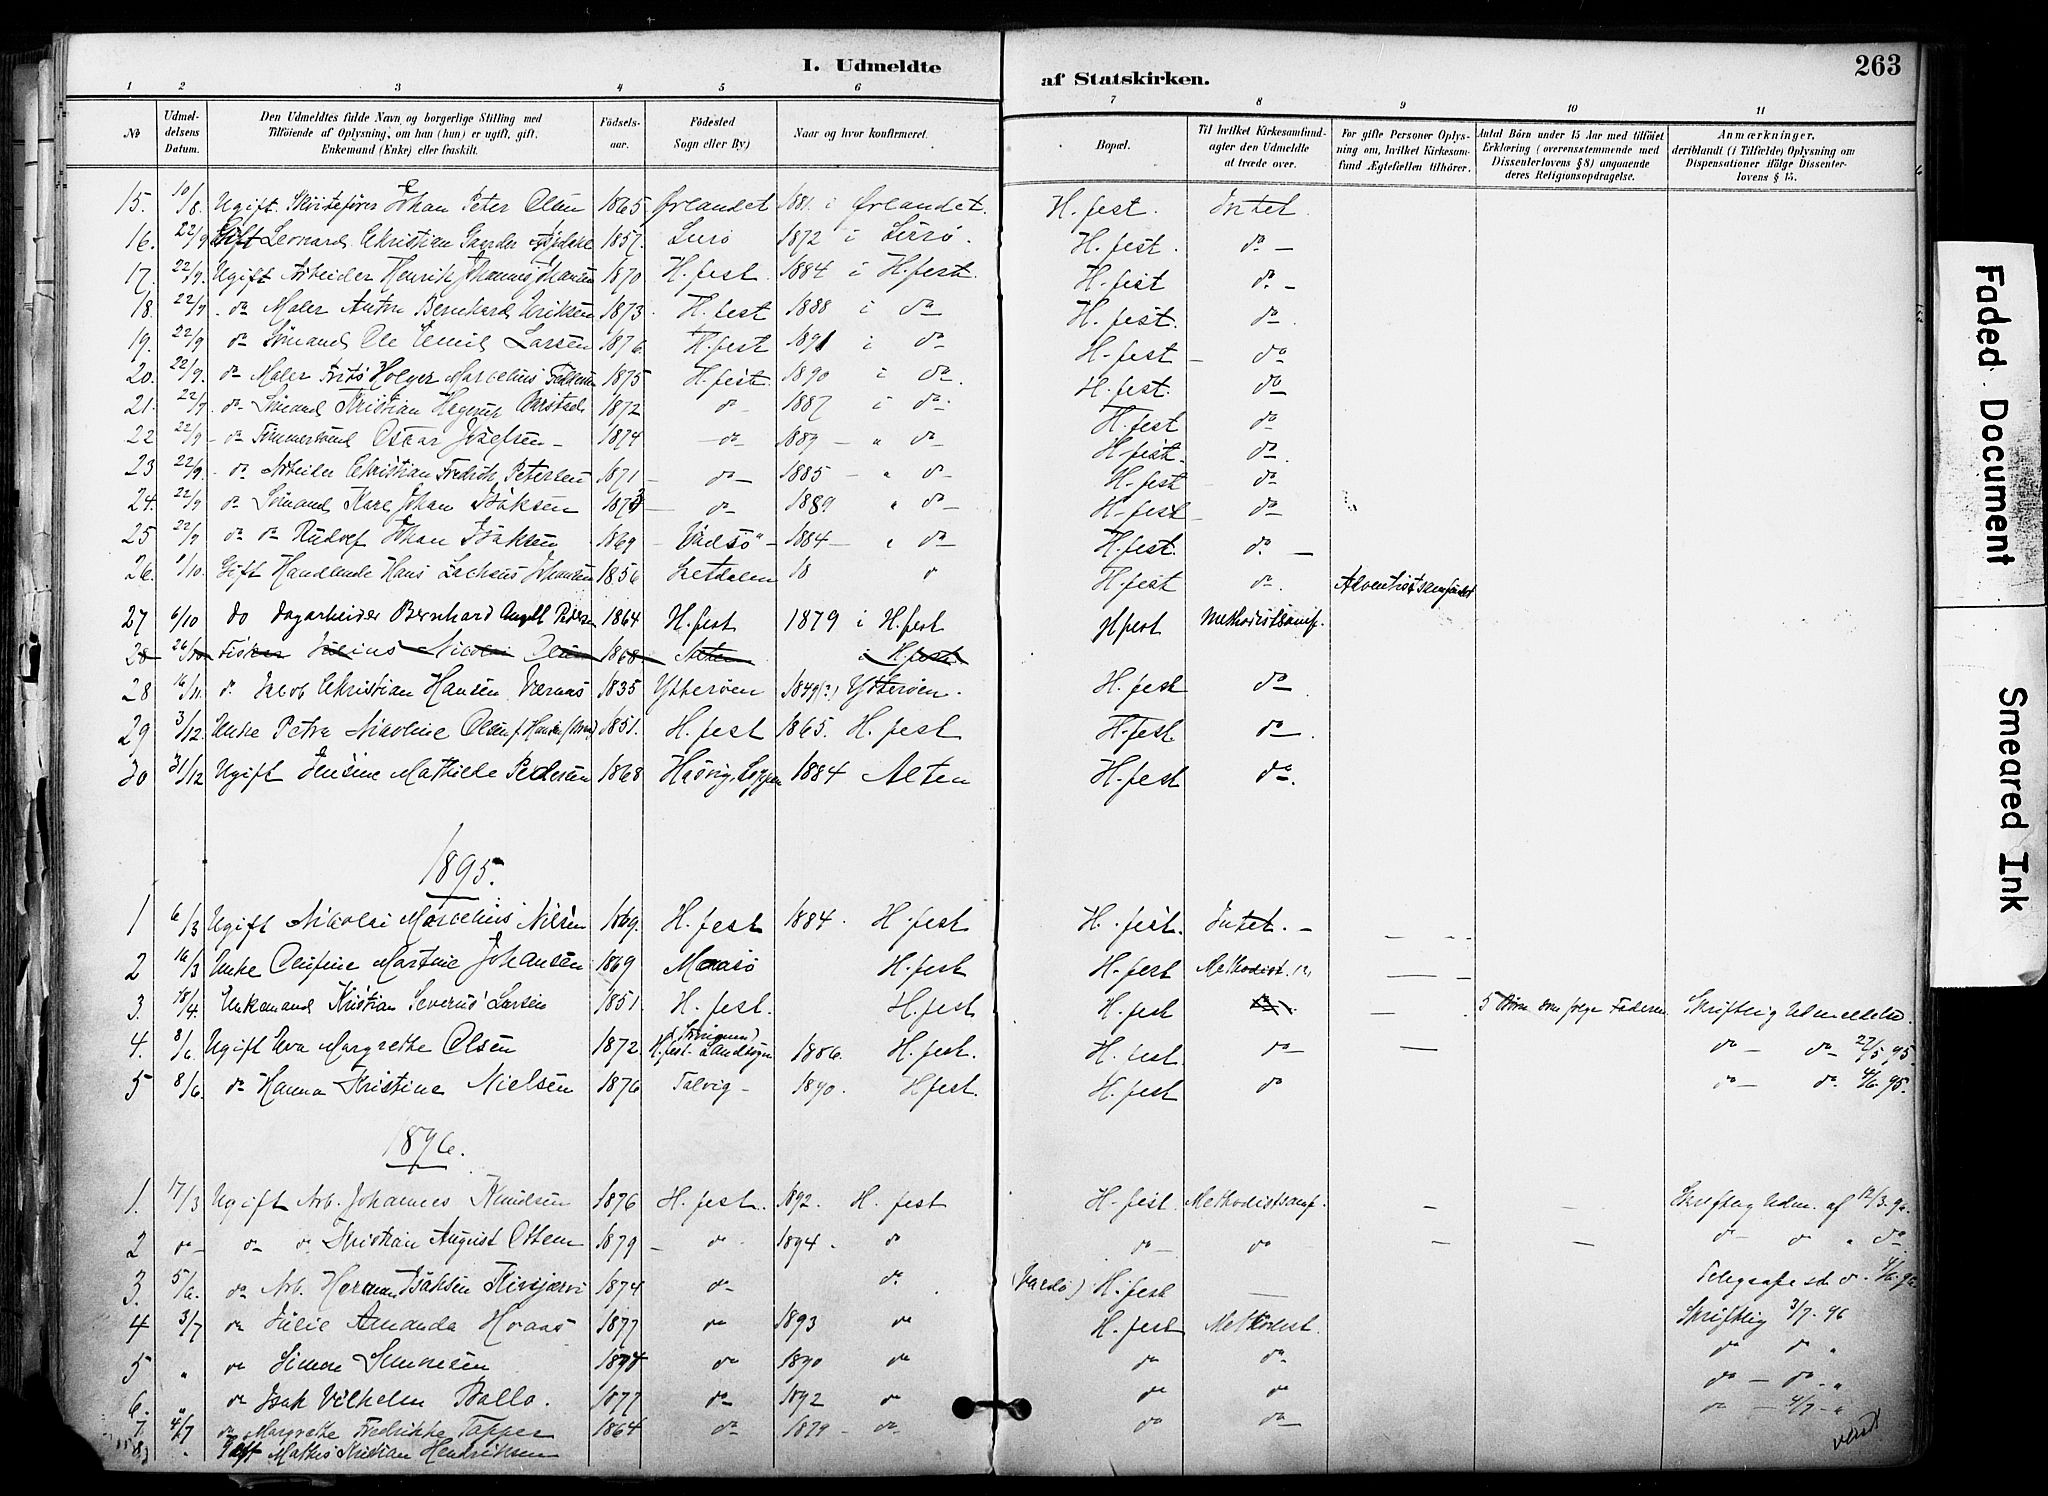 I. Udmeldte af Statskirken. 263
1 2 3 4 5 6 7 8 9 10 11
No
Udmeldelsens Datum.
Den Udmeldtes fulde Navn og borgerlige Stilling med Tilföiende af Oplysning, om han (hun) er ugift, gift, Enkemand (Enke) eller fraskilt.
Födselsaar.
Födested Sogn eller By)
Naar og hvor konfirmeret.
Bopæl.
Til hvilket Kirkesamfund agter den Udmeldte at træde over.
For gifte Personer Oplysning om, hvilket Kirkesamfund Ægtefællen tilhörer.
Antal Börn under 15 Aar med tilföiet Erklæring (overensstemmende med Dissenterlovens § 8) angaaende deres Religionsopdragelse.
Anmærkninger, deriblandt (i Tilfælde) Oplysning om Dispensationer Hölge Dissenterlovens § 15.
15. 10/8. Ugift Johan Peter Olsen 1865 Ørlandet 1881 i Ørlandet. H. fest. Intet.
16. 22/9 Gift Leonard Christian 1857. Lurö 1872 i Lurö. H. fest. do —
17. 22/9. Ugift Arbeider Henrik Johannes Johansen 1870 H. fest. 1884 i H. fest. H. fest do —
18. 22/9. do Maler Anton Bernhard Eriksen 1873. H. fest 1888 i do H. fest. do.
19. 22/9 do Sömand Ole Emil Larsen 1876. H. fest 1891 i do H. fest — do
20. 22/9. do Maler Holger Marcelius 1875 H. fest. 1890 i do. H. fest. do
21. 22/9 do Sömand Kristian 1872 do 1887 i do. H. fest do
22 22/9 — do Tömmermand Oscar — 1874 — do 1889 — " do H. fest. do.
23 22/9. do Arbeider Christian Fredrik Petersen 1871 — do — 1885 — " do H. fest — do
24. 22/9 do Sömand Karl Johan Isaksen 1873 — do — 1889 " do — H. fest — do
25 22/9 do do Rudolf Johan Isaksen 1869 — Vadsö" — 1884 — " do H. fest. do. —
26. 1/10. Gift Handlende Hans Johansen 1856 18 " H. fest do Adventistsamfundet
27 6/10 do Dagarbeider Bernhard Angell Pedersen 1864 H. fest 1879 i H. fest H fest Methodistsamf.
28 26/10 Fisker Julius Nicolai Olsen 1868 Alten i H. fest
28 16/11. do Jacob Christian HansenVærnæs 1835 Ytterøen 1849(?) Ytterøen. H. fest do
29 3/12. Enke Petra Nicoline Olsen 1851. H. fest 1865. H. fest H. fest do —.
30 31/12 Ugift Jensine Mathilde Pedersen 1868 Hasvig, Loppen 1884 Alten H. fest do.
1895.
1 6/3 Ugift Nikolai Marcelius Nilsen 1869. H. fest 1884. H. fest H. fest. Intet. —
2 16/3 Enke Olufine Martine Johansen 1869 Maasö H. fest H. fest Methodist.
3. 18/4. Enkemand Kristian Severus Larsen 1851. H. fest. H. fest H. fest — 5 Börn som følge Faderen Skriftlig Udmeldelse.
4. 8/6. Ugift Eva Margrethe Olsen 1872. H. fest Landsogn 1886. H. fest. H. fest. do — do — do 27/5 95.
5 8/6. do Hanna Kristine Nielsen 1876 Talvig — 1890. H fest. H. fest do do — do 4/6. 95.
1896.
1. 17/3 Ugift Arb. Johannes Knudsen 1876 H. fest. 1892. H. fest H. fest Methodistsamf. — — Skriftlig Udm. af 12/3. 96.
2 do — do do Kristian August Ottem 1879 — do 1894. do do — do — — do — do " do
3. 5/6. do Arb. Herman Isaksen Kivijærvi 1874 do do. (Vardö) H. fest — 4/6. 96
4 3/7 do Julie Amanda Hraas 1877 do 1893 do H. fest Methodist. Skriftlig 3/7. 96
5 " do Simon Simonsen 1874 do 1890 do do do do do "
6. " do Isak Vilhelm Ballo. 1877 do 1892 do do do do — do — "
7 4/7 do Margrethe Fredrikke Tapper 1864 do 1879 — do do do do — 4/7 — "
8 " Gift Mathis Kristian Hendriksen
vend
Faded Document
Smeared Ink